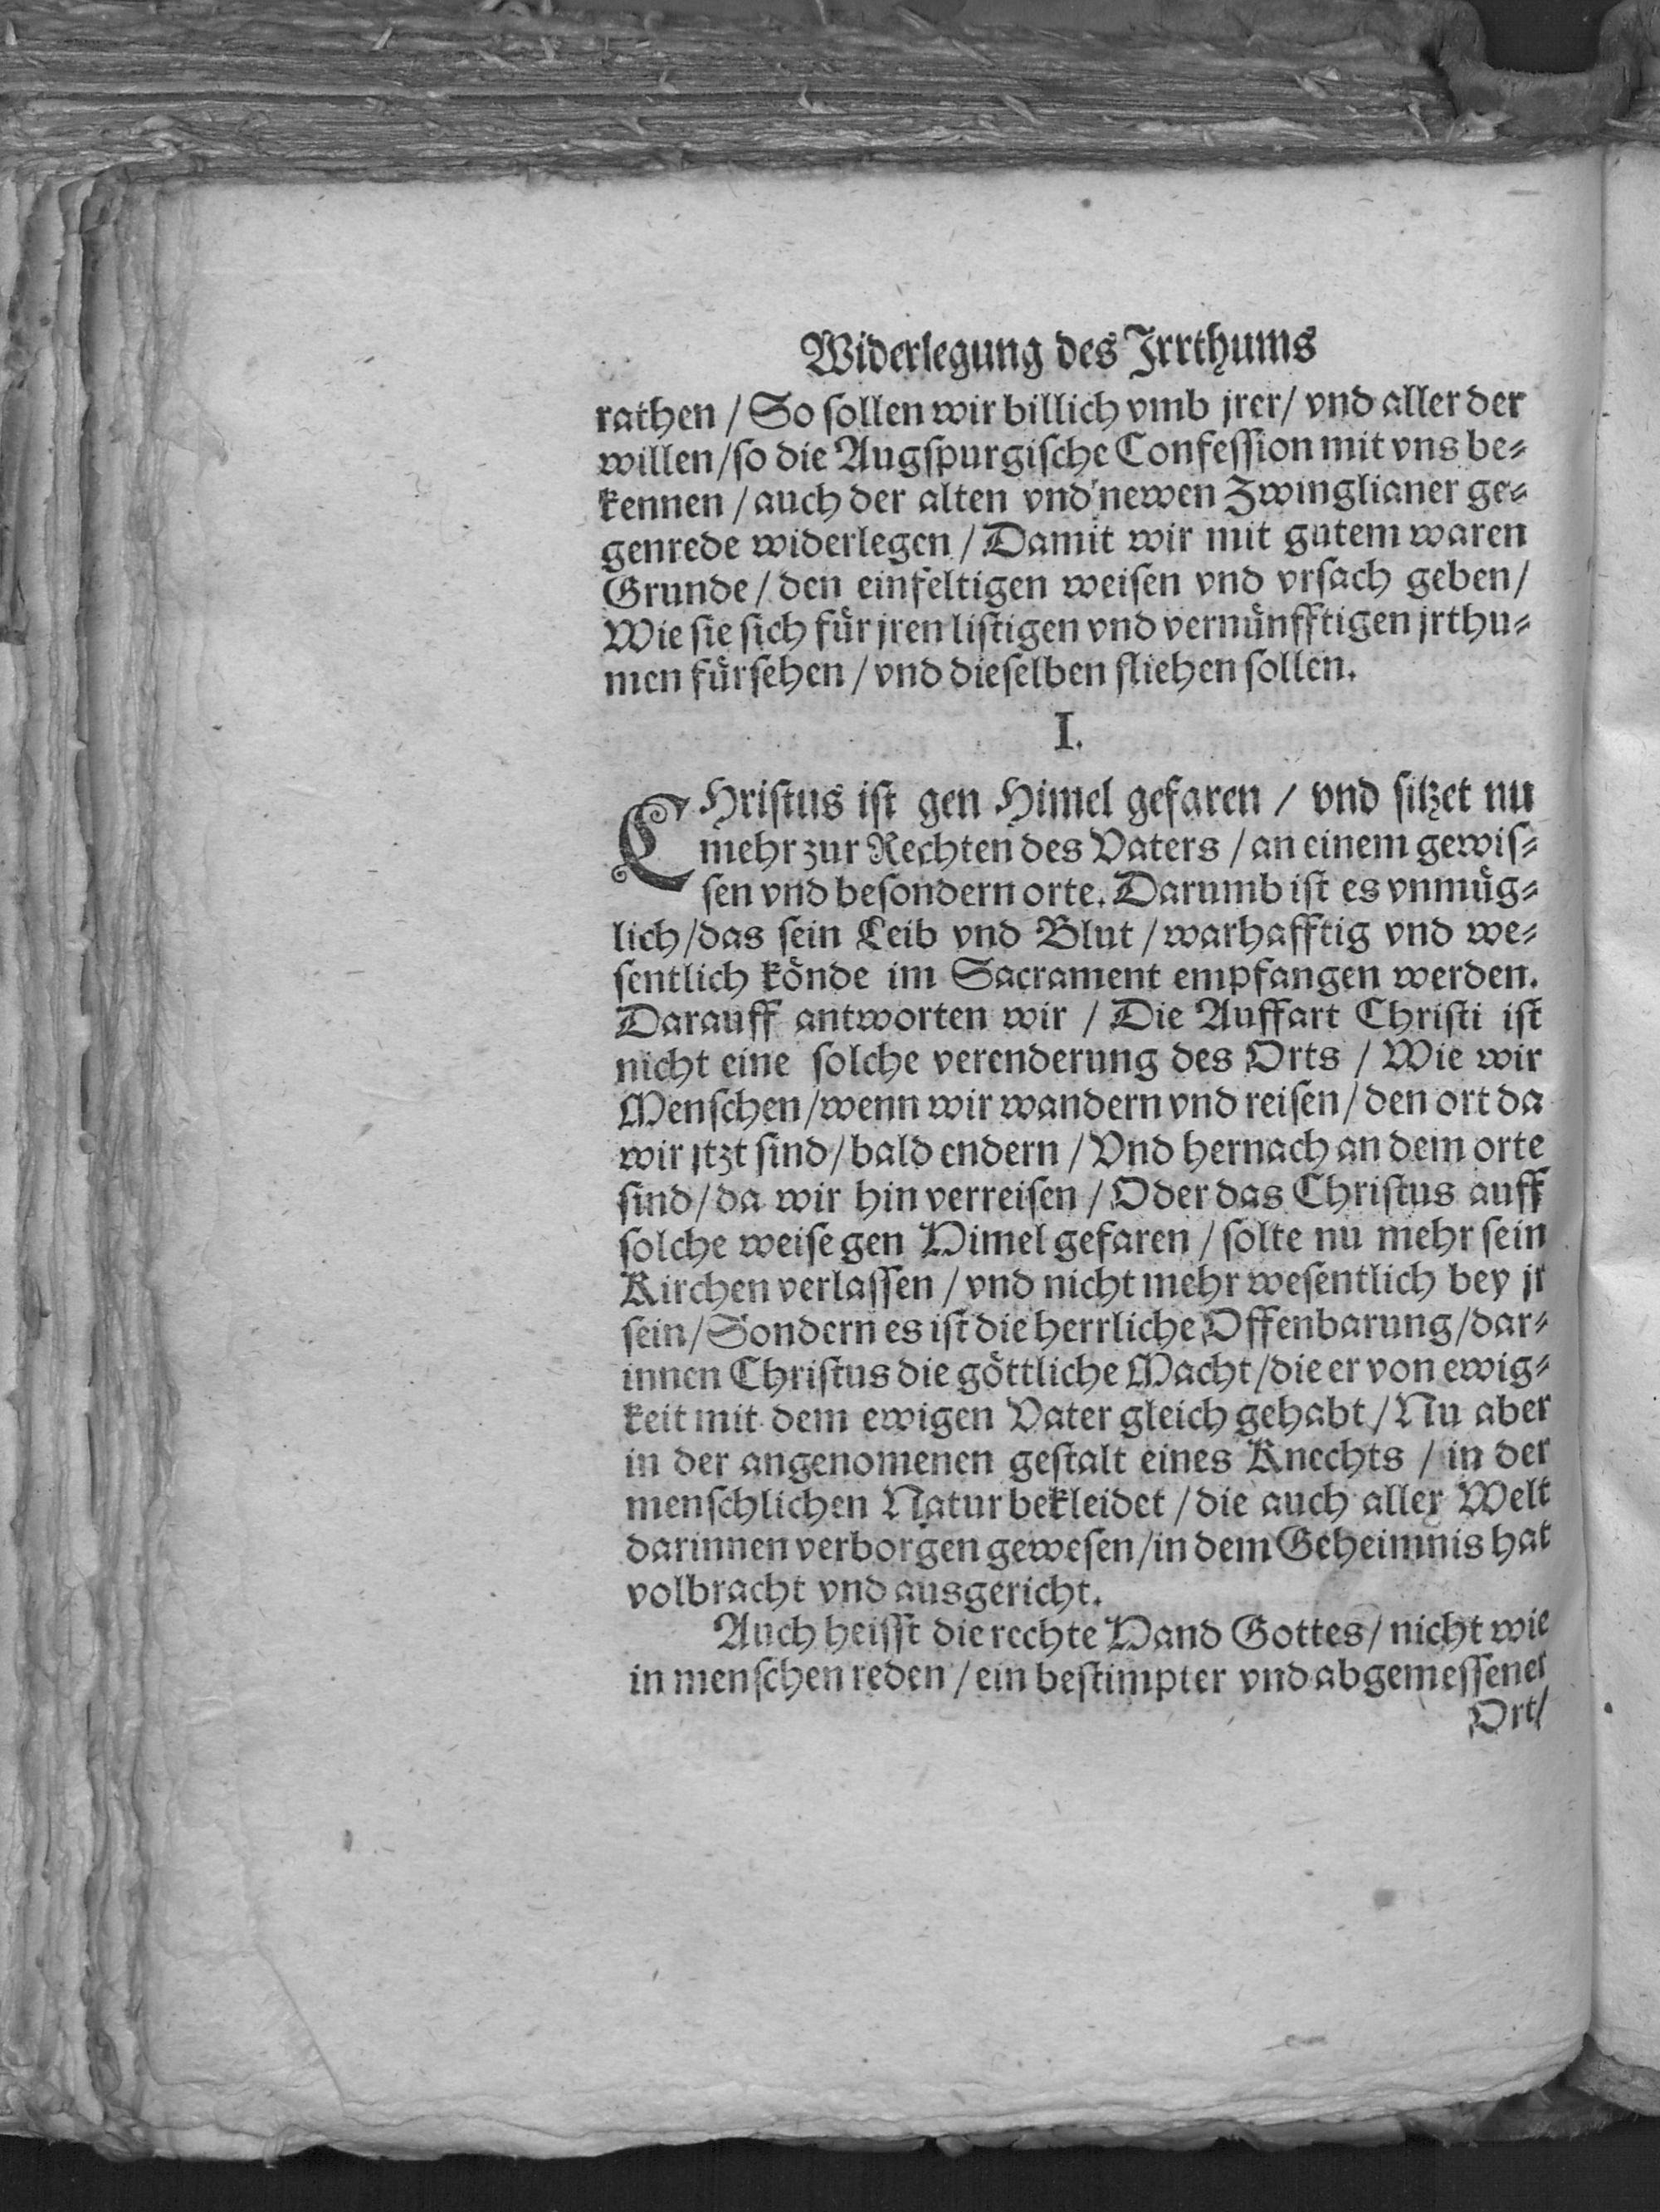 Widerlegung des Irrthums
rathen / So sollen wir billich vmb jrer / vnd aller der
willen / so die Augspurgische Confession mit vns be⸗
kennen / auch der alten vnd newen Zwinglianer ge⸗
genrede widerlegen / Damit wir mit gutem waren
Grunde / den einfeltigen weisen vnd vrsach geben /
Wie sie sich fuͤr jren listigen vnd vernuͤnfftigen jrthu⸗
men fuͤrsehen / vnd dieselben fliehen sollen.
I.
CHristus ist gen Himel gefaren / vnd sitzet nu
mehr zur Rechten des Vaters / an einem gewis⸗
sen vnd besondern orte. Darumb ist es vnmuͤg⸗
lich / das sein Leib vnd Blut / warhafftig vnd we⸗
sentlich koͤnde im Sacrament empfangen werden.
Darauff antworten wir / Die Auffart Christi ist
nicht eine solche verenderung des Orts / Wie wir
Menschen / wenn wir wandern vnd reisen / den ort da
wir jtzt sind / bald endern / Vnd hernach an dem orte
sind / da wir hin verreisen / Oder das Christus auff
solche weise gen Himel gefaren / solte nu mehr sein
Kirchen verlassen / vnd nicht mehr wesentlich bey jr
sein / Sondern es ist die herrliche Offenbarung / dar⸗
innen Christus die goͤttliche Macht / die er von ewig⸗
keit mit dem ewigen Vater gleich gehabt / Nu aber
in der angenomenen gestalt eines Knechts / in der
menschlichen Natur bekleidet / die auch aller Welt
darinnen verborgen gewesen / in dem Geheimnis hat
volbracht vnd ausgericht.
Auch heisst die rechte Hand Gottes / nicht wie
in menschen reden / ein bestimpter vnd abgemessener
Ort /